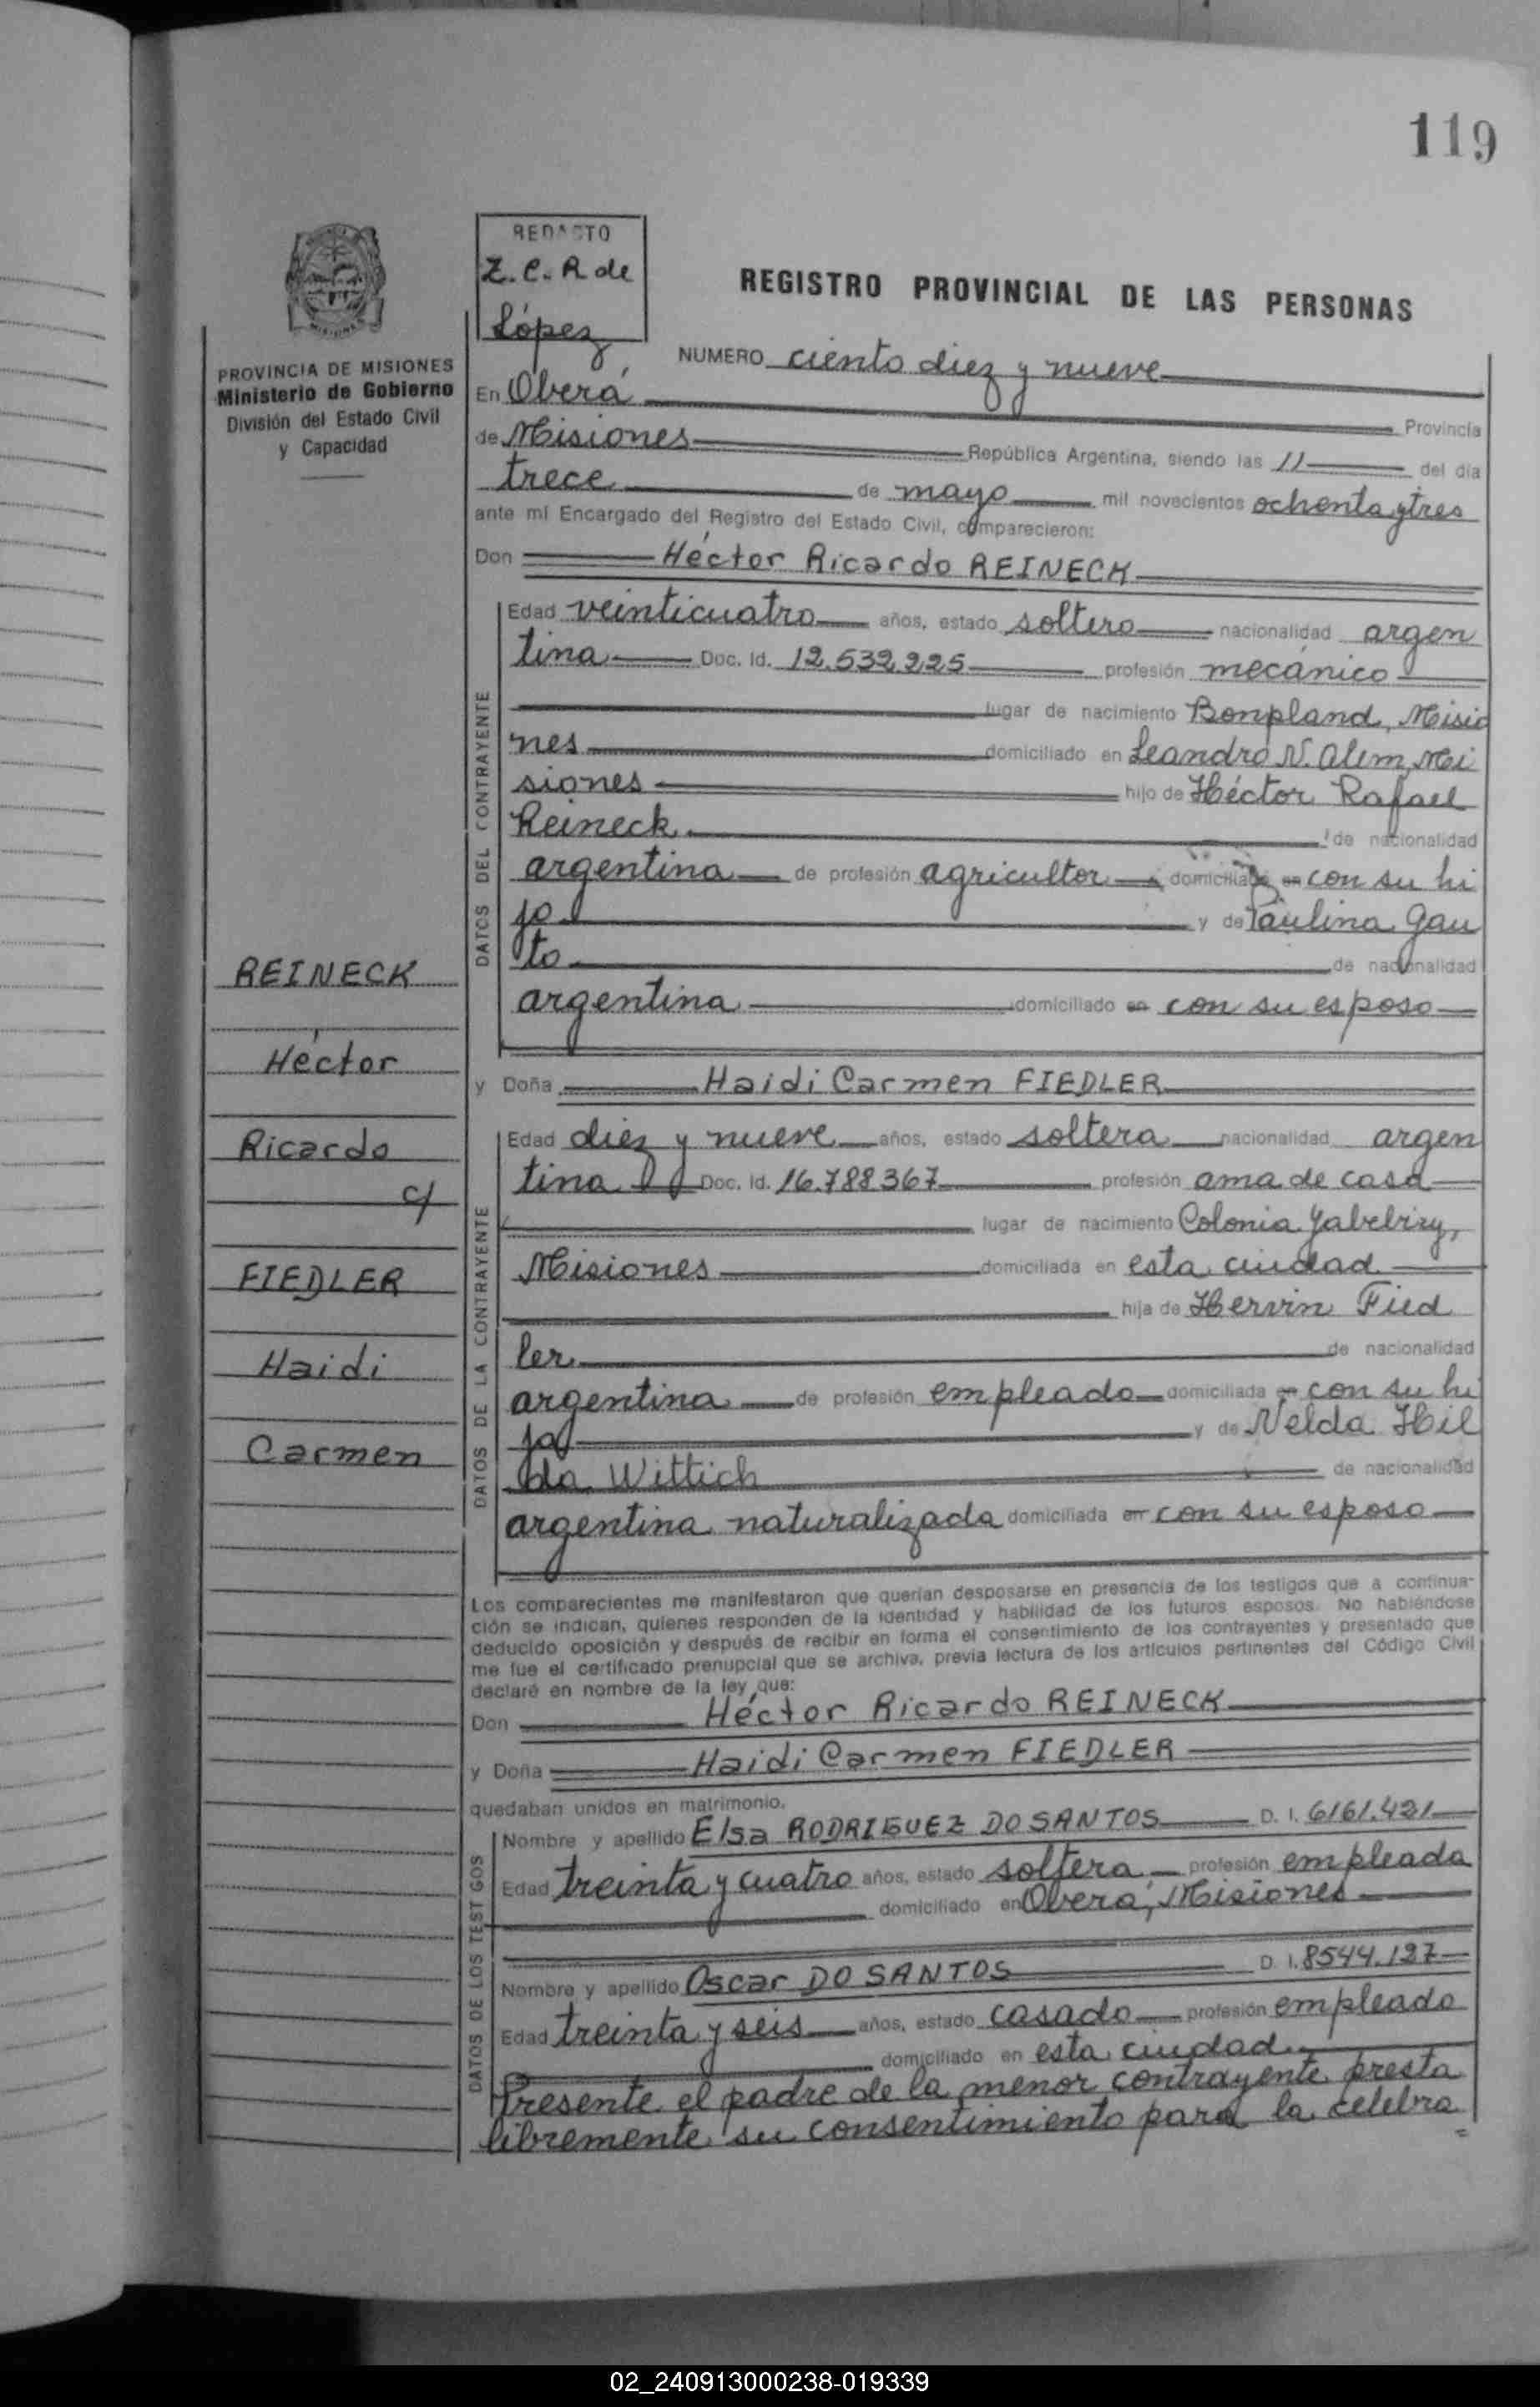 119
REDACTO
Z. C. R de
López
REGISTRO PROVINCIAL DE LAS PERSONAS
PROVINCIA DE MISIONES
Ministerio de Gobierno
División del Estado Civil
y Capacidad
NUMERO ciento diez y nueve
En Oberá
Provincia
de Misiones República Argentina, siendo las 11 del día
trece de mayo mil novecientos ochenta y tres
ante mí Encargado del Registro del Estado Civil, comparecieron:
Don Héctor Ricardo REINECK
DATOS DEL CONTRAYENTE
Edad veinticuatro años, estado soltero nacionalidad argen
tina Doc. Id. 12.532.225 profesión mecánico
lugar de nacimiento Bonpland, Misio
nes domiciliado en Leandro N. Alem, Mi
siones hijo de Héctor Rafael
Reineck de nacionalidad
argentina de profesión agricultor domiciliado en con su hi
jo y de Paulina Gau
to de nacionalidad
argentina domiciliado en con su esposo
REINECK
Héctor
Ricardo
c/
FIEDLER
Haidi
Carmen
y Doña Haidi Carmen FIEDLER
DATOS DE LA CONTRAYENTE
Edad diez y nueve años, estado soltera nacionalidad argen
tina Doc. Id. 16.788367 profesión ama de casa
lugar de nacimiento Colonia Yabebiry,
Misiones domiciliada en esta ciudad
hija de Hervin Fied
ler de nacionalidad
argentina de profesión empleado domiciliada en con su hi
ja y de Nelda Hil
da Wittich de nacionalidad
argentina naturalizada domiciliada en con su esposo
Los comparecientes me manifestaron que querían desposarse en presencia de los testigos que a continua-
ción se indican, quienes responden de la identidad y habilidad de los futuros esposos. No habiéndose
deducido oposición y después de recibir en forma el consentimiento de los contrayentes y presentado que
me fue el certificado prenupcial que se archiva, previa lectura de los artículos pertinentes del Código Civil
declaré en nombre de la ley que:
Don Héctor Ricardo REINECK
y Doña Haidi Carmen FIEDLER
quedaban unidos en matrimonio.
DATOS DE LOS TESTIGOS
Nombre y apellido Elsa RODRIGUEZ DO SANTOS D. I. 6161.421
Edad treinta y cuatro años, estado soltera profesión empleada
domiciliado en Oberá, Misiones
Nombre y apellido Oscar DO SANTOS D. I. 8544.127
Edad treinta y seis años, estado casado profesión empleado
domiciliado en esta ciudad
Presente el padre de la menor contrayente presta
libremente su consentimiento para la celebra=
02_240913000238-019339